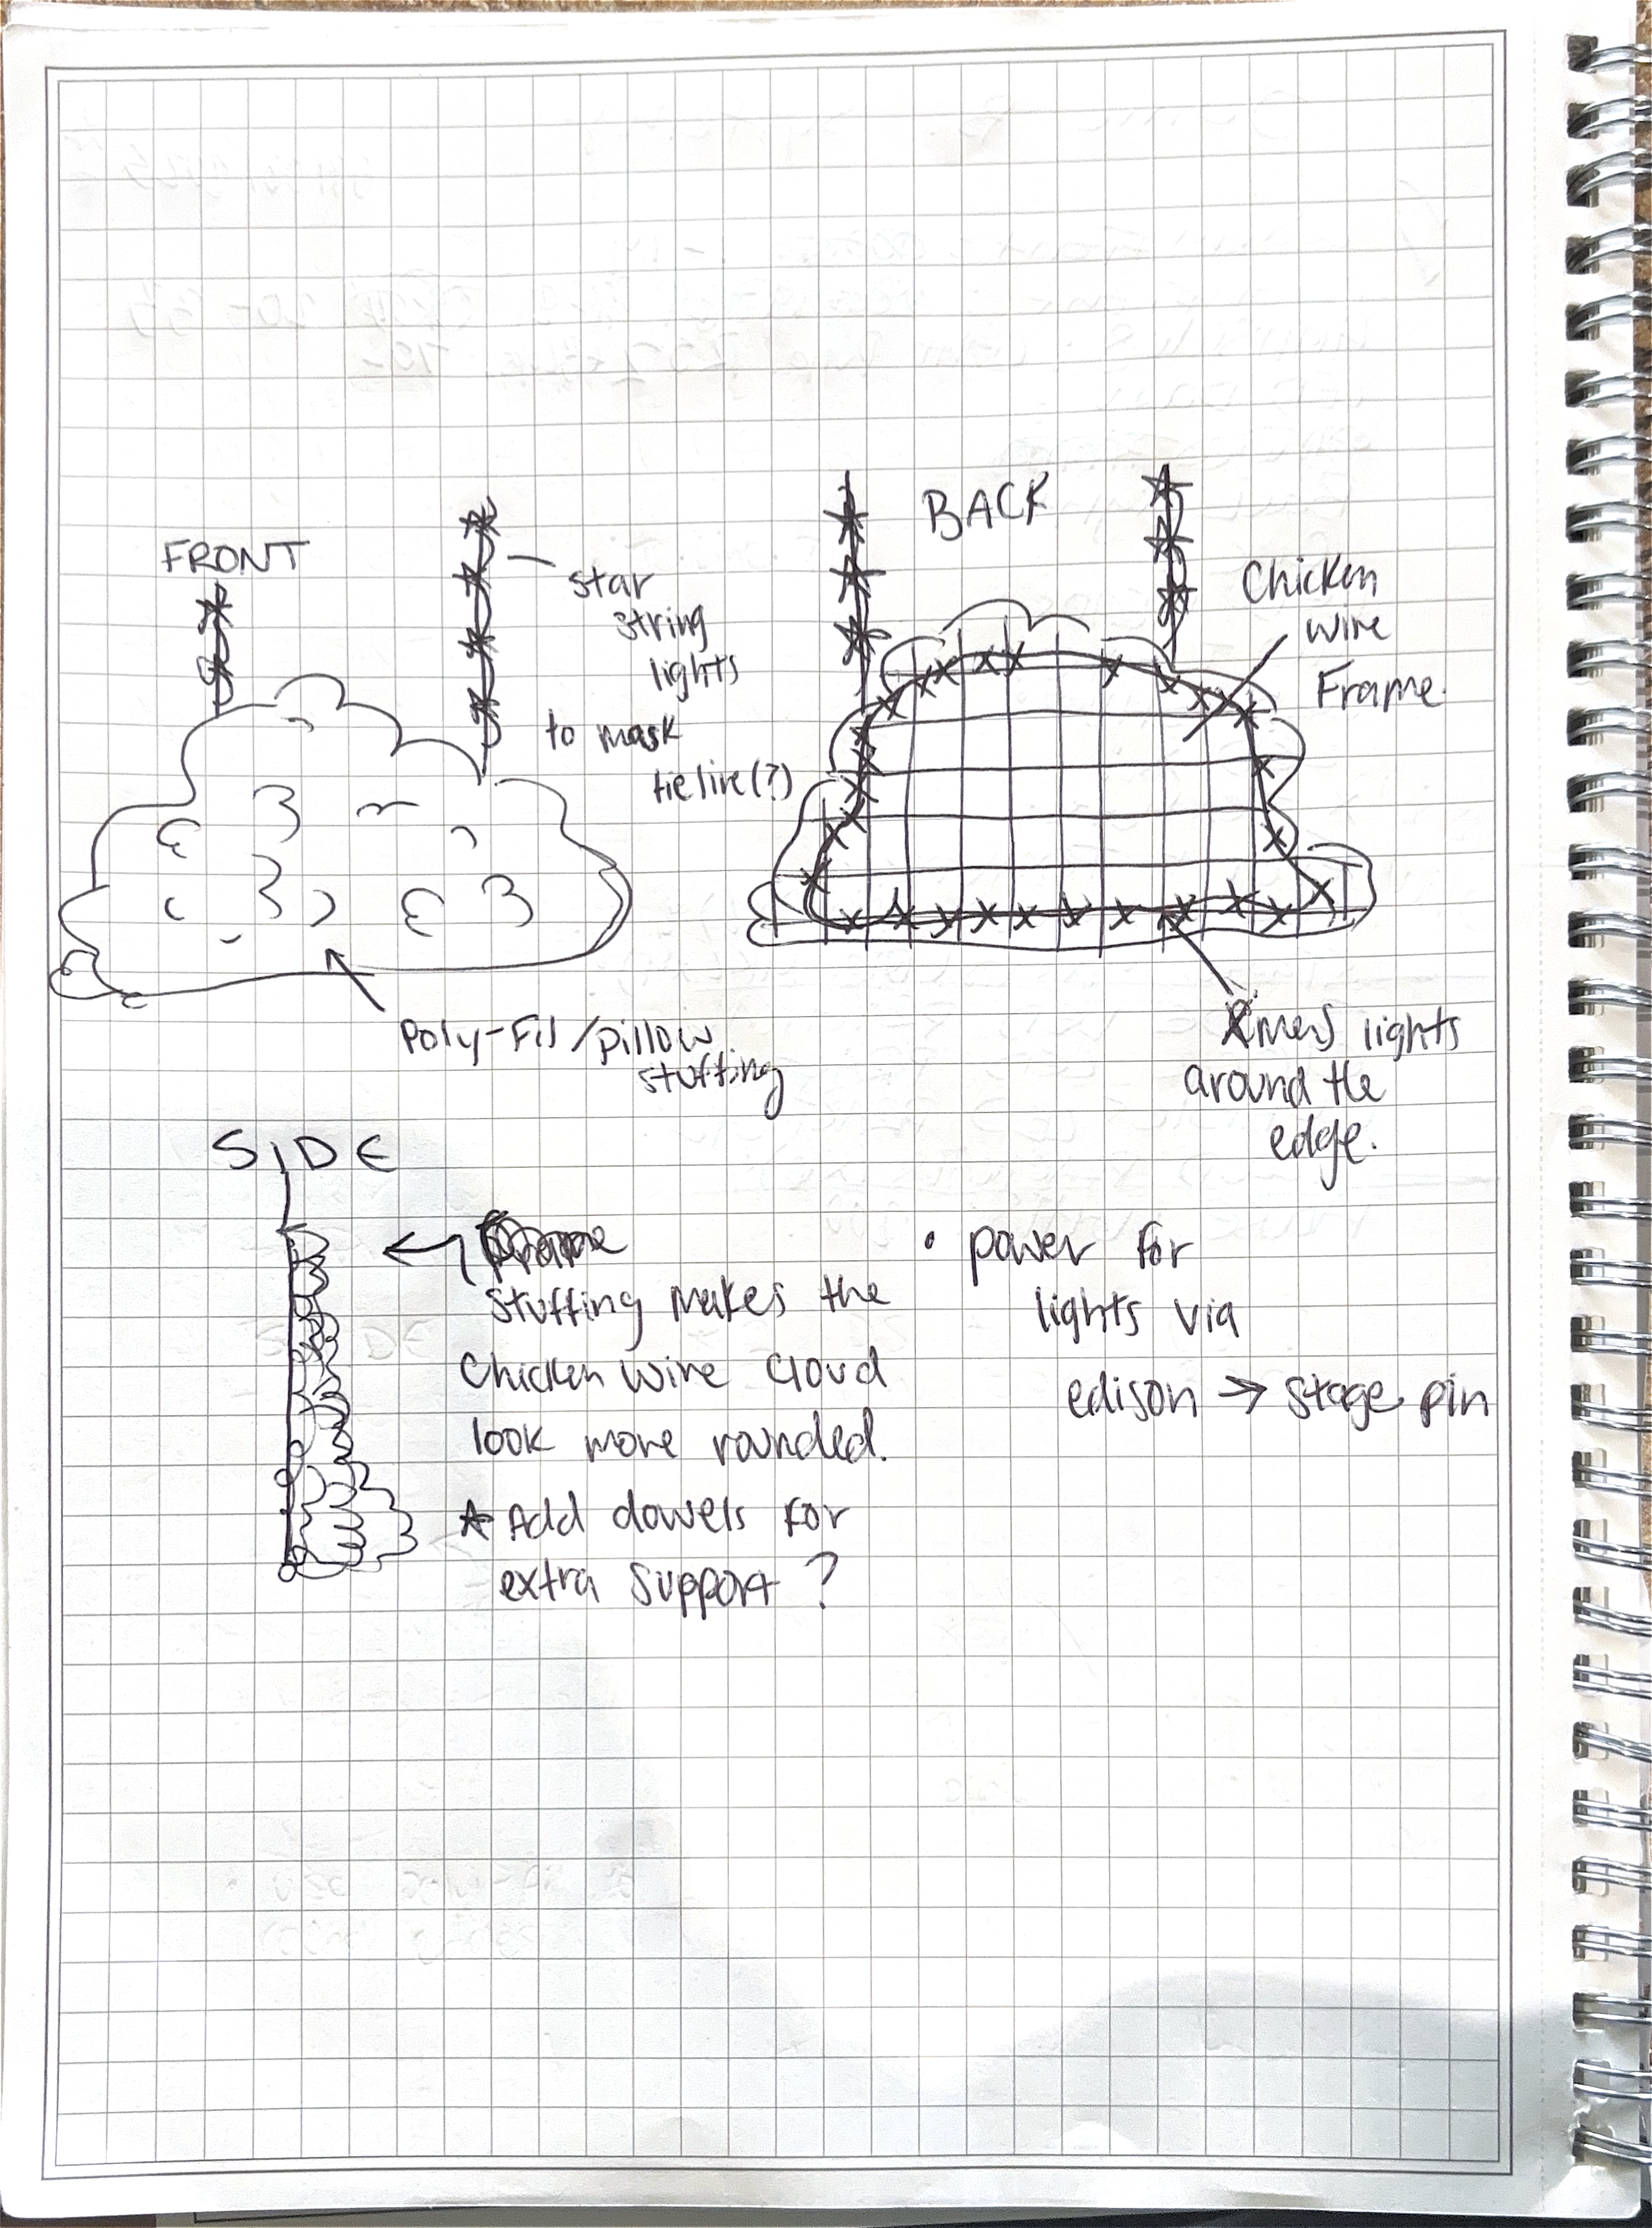 FRONT
star
string
lights
to mask
tieline(?)
Poly-Fil/pillow
stuffing
BACK
Chicken
wire
Frame.
Xmas lights
around the
edge.
SIDE
stuffing makes the
Chicken wire cloud
look more rounded.
★ Add dowels for
extra support?
• power for
lights via
edison → stage pin